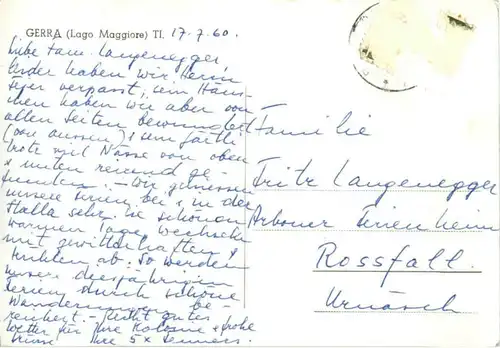 GERRA (Lago Maggiore) TI. 17.7.60.
Liebe Fam. Langenegger,
leider haben wir Herrn
verpasst, sein Häus-
chen haben wir aber von
allen Seiten bewundert
(von aussen) & sein
trotz viel Nässe von oben
& unten reizend ge-
funden. - Wir geniessen
unsere Ferien bei & in der
Halla sehr. Die schönen
warmen Tage wechseln
mit gewitterhaften &
kühlen ab. So werden
unsere diesjährigen
Ferien durch schöne
Wanderungen be-
reichert. - gutes
Wetter für Ihre Kolonie & frohe
Grüsse Ihre 5x Senners.
Familie
Fritz Langenegger
Arboner Ferienheim
Rossfall.
Urnäsch